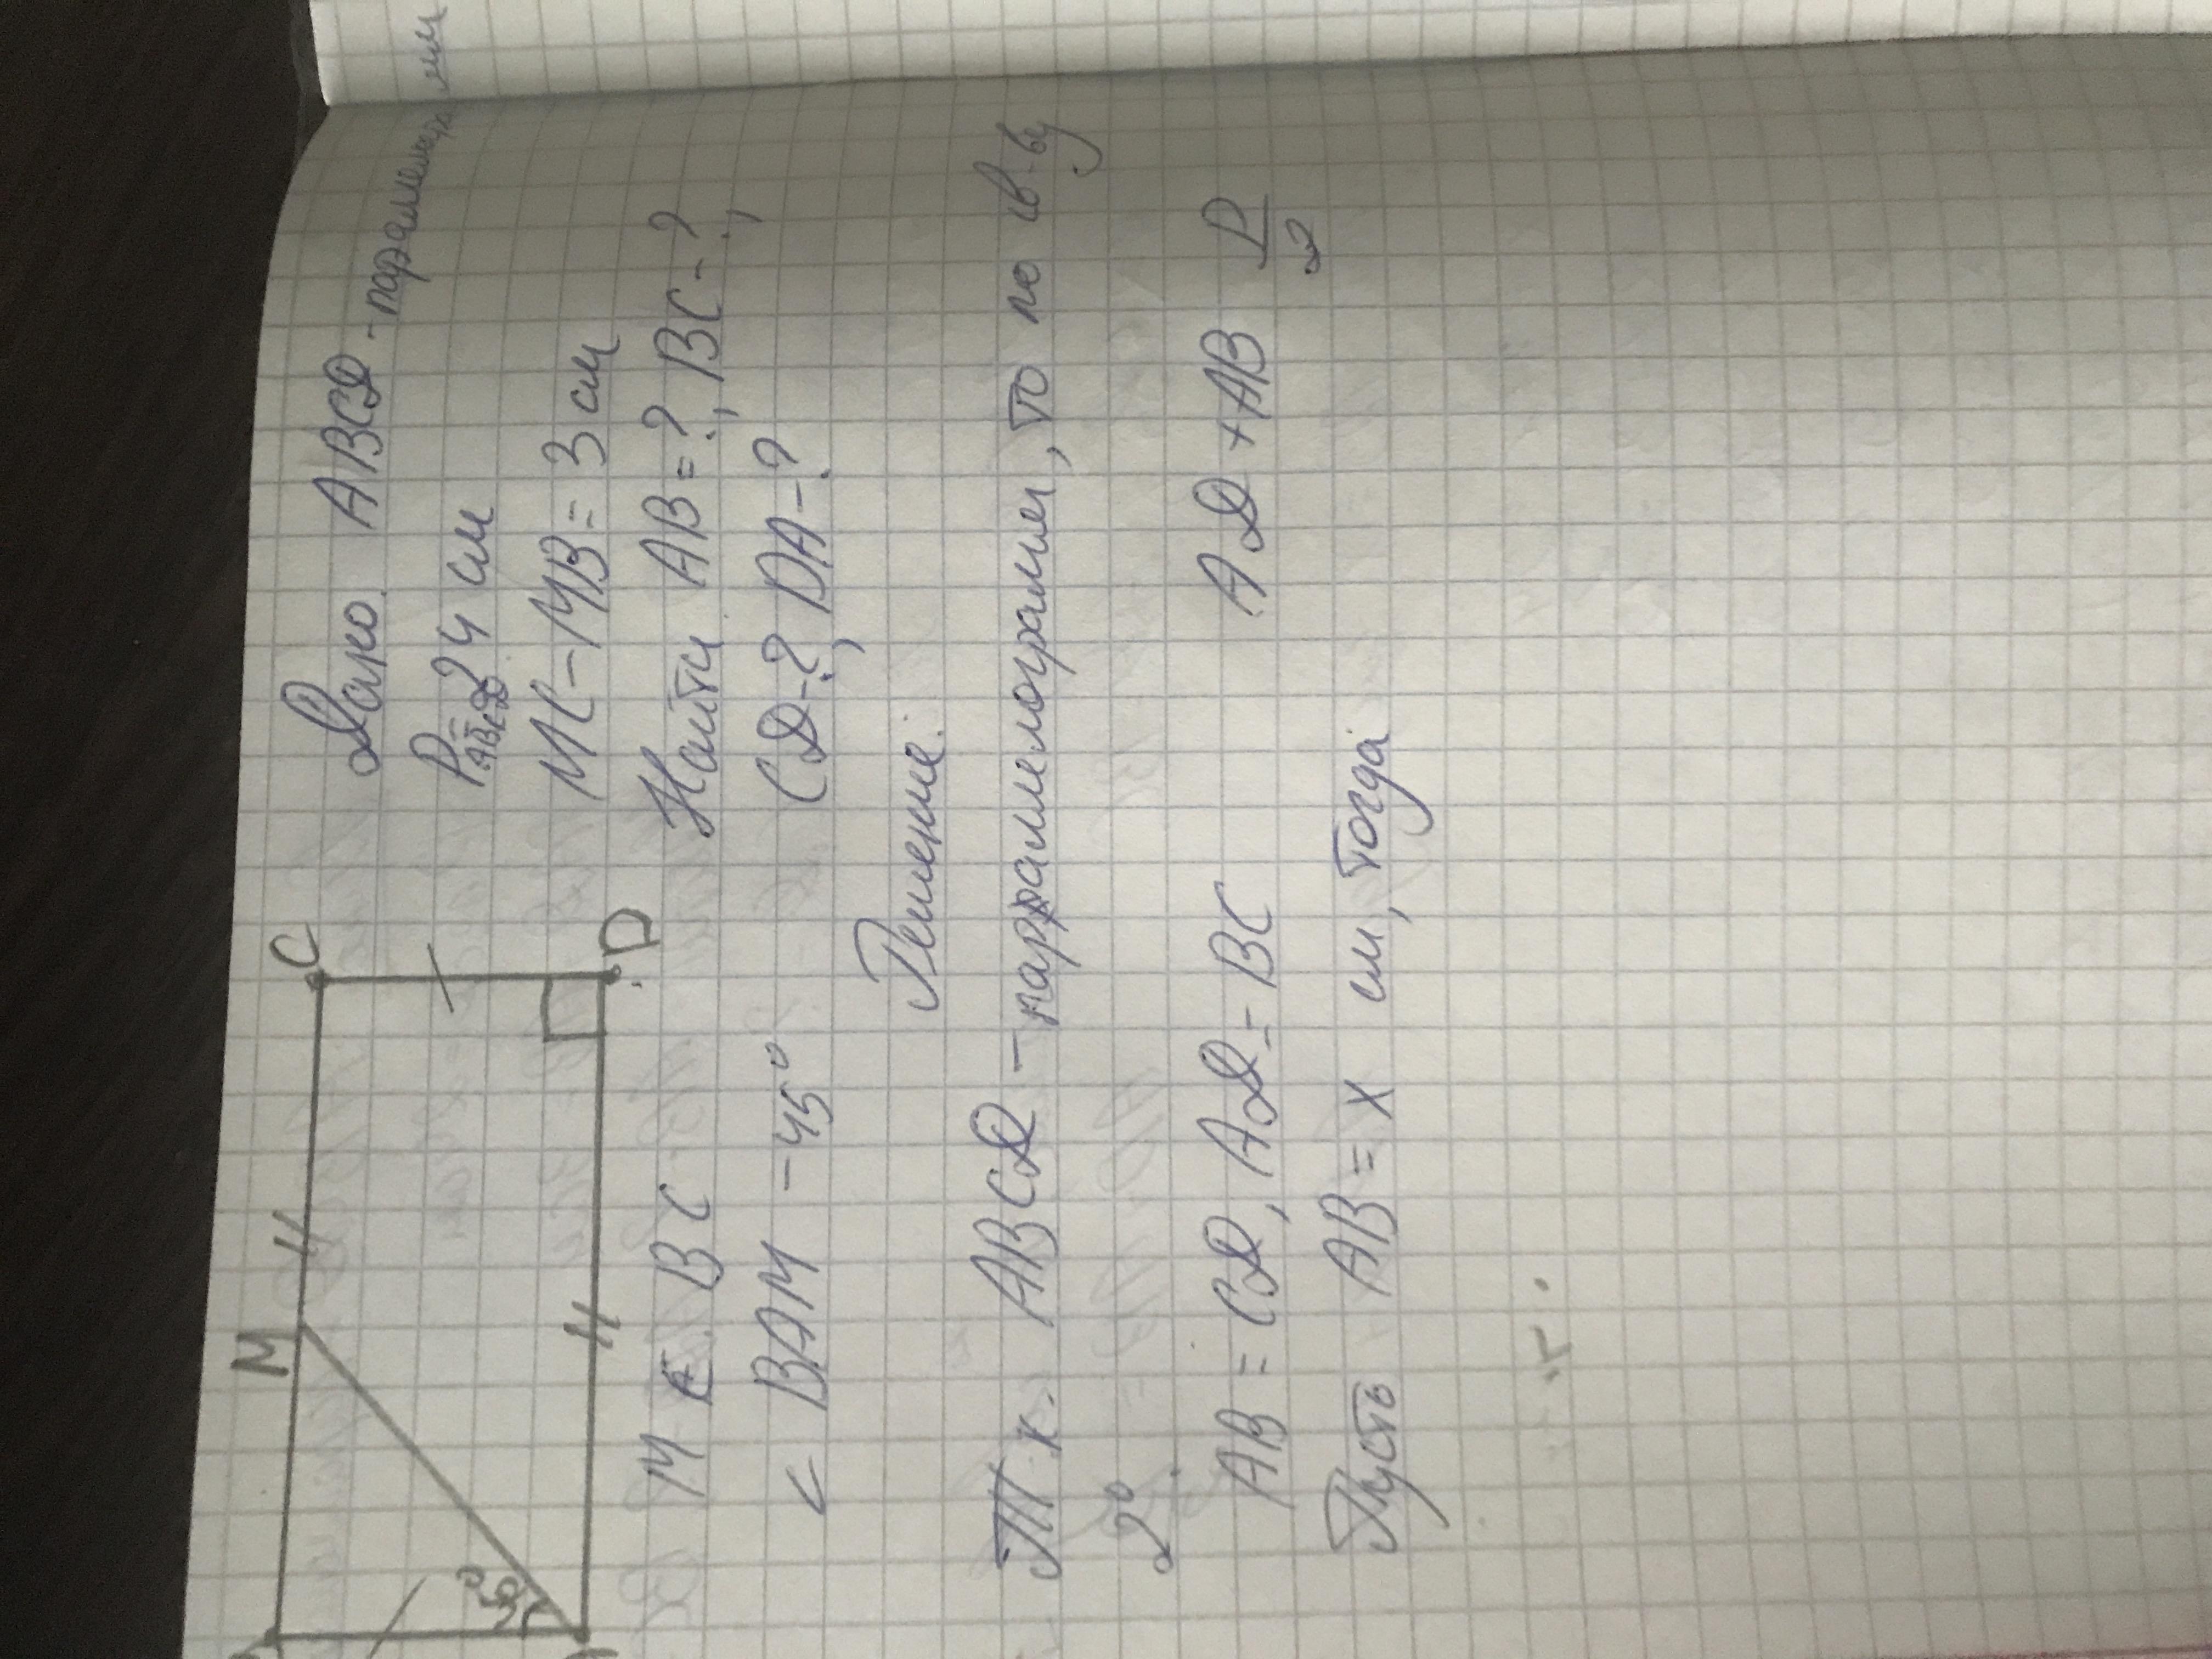 M
C
D
45°
Дано: ABCD - параллелограмм
P ABCD = 24 см
MC-MB=3 см
M ∈ BC
Найти AB=?, BC-?,
< BAM -45°
CD-?, DA-?
Решение:
Т.к. ABCD - параллелограмм, то по св-ву
2°
AB = CD, AD = BC AD+AB P/2
Пусть AB = x см, тогда